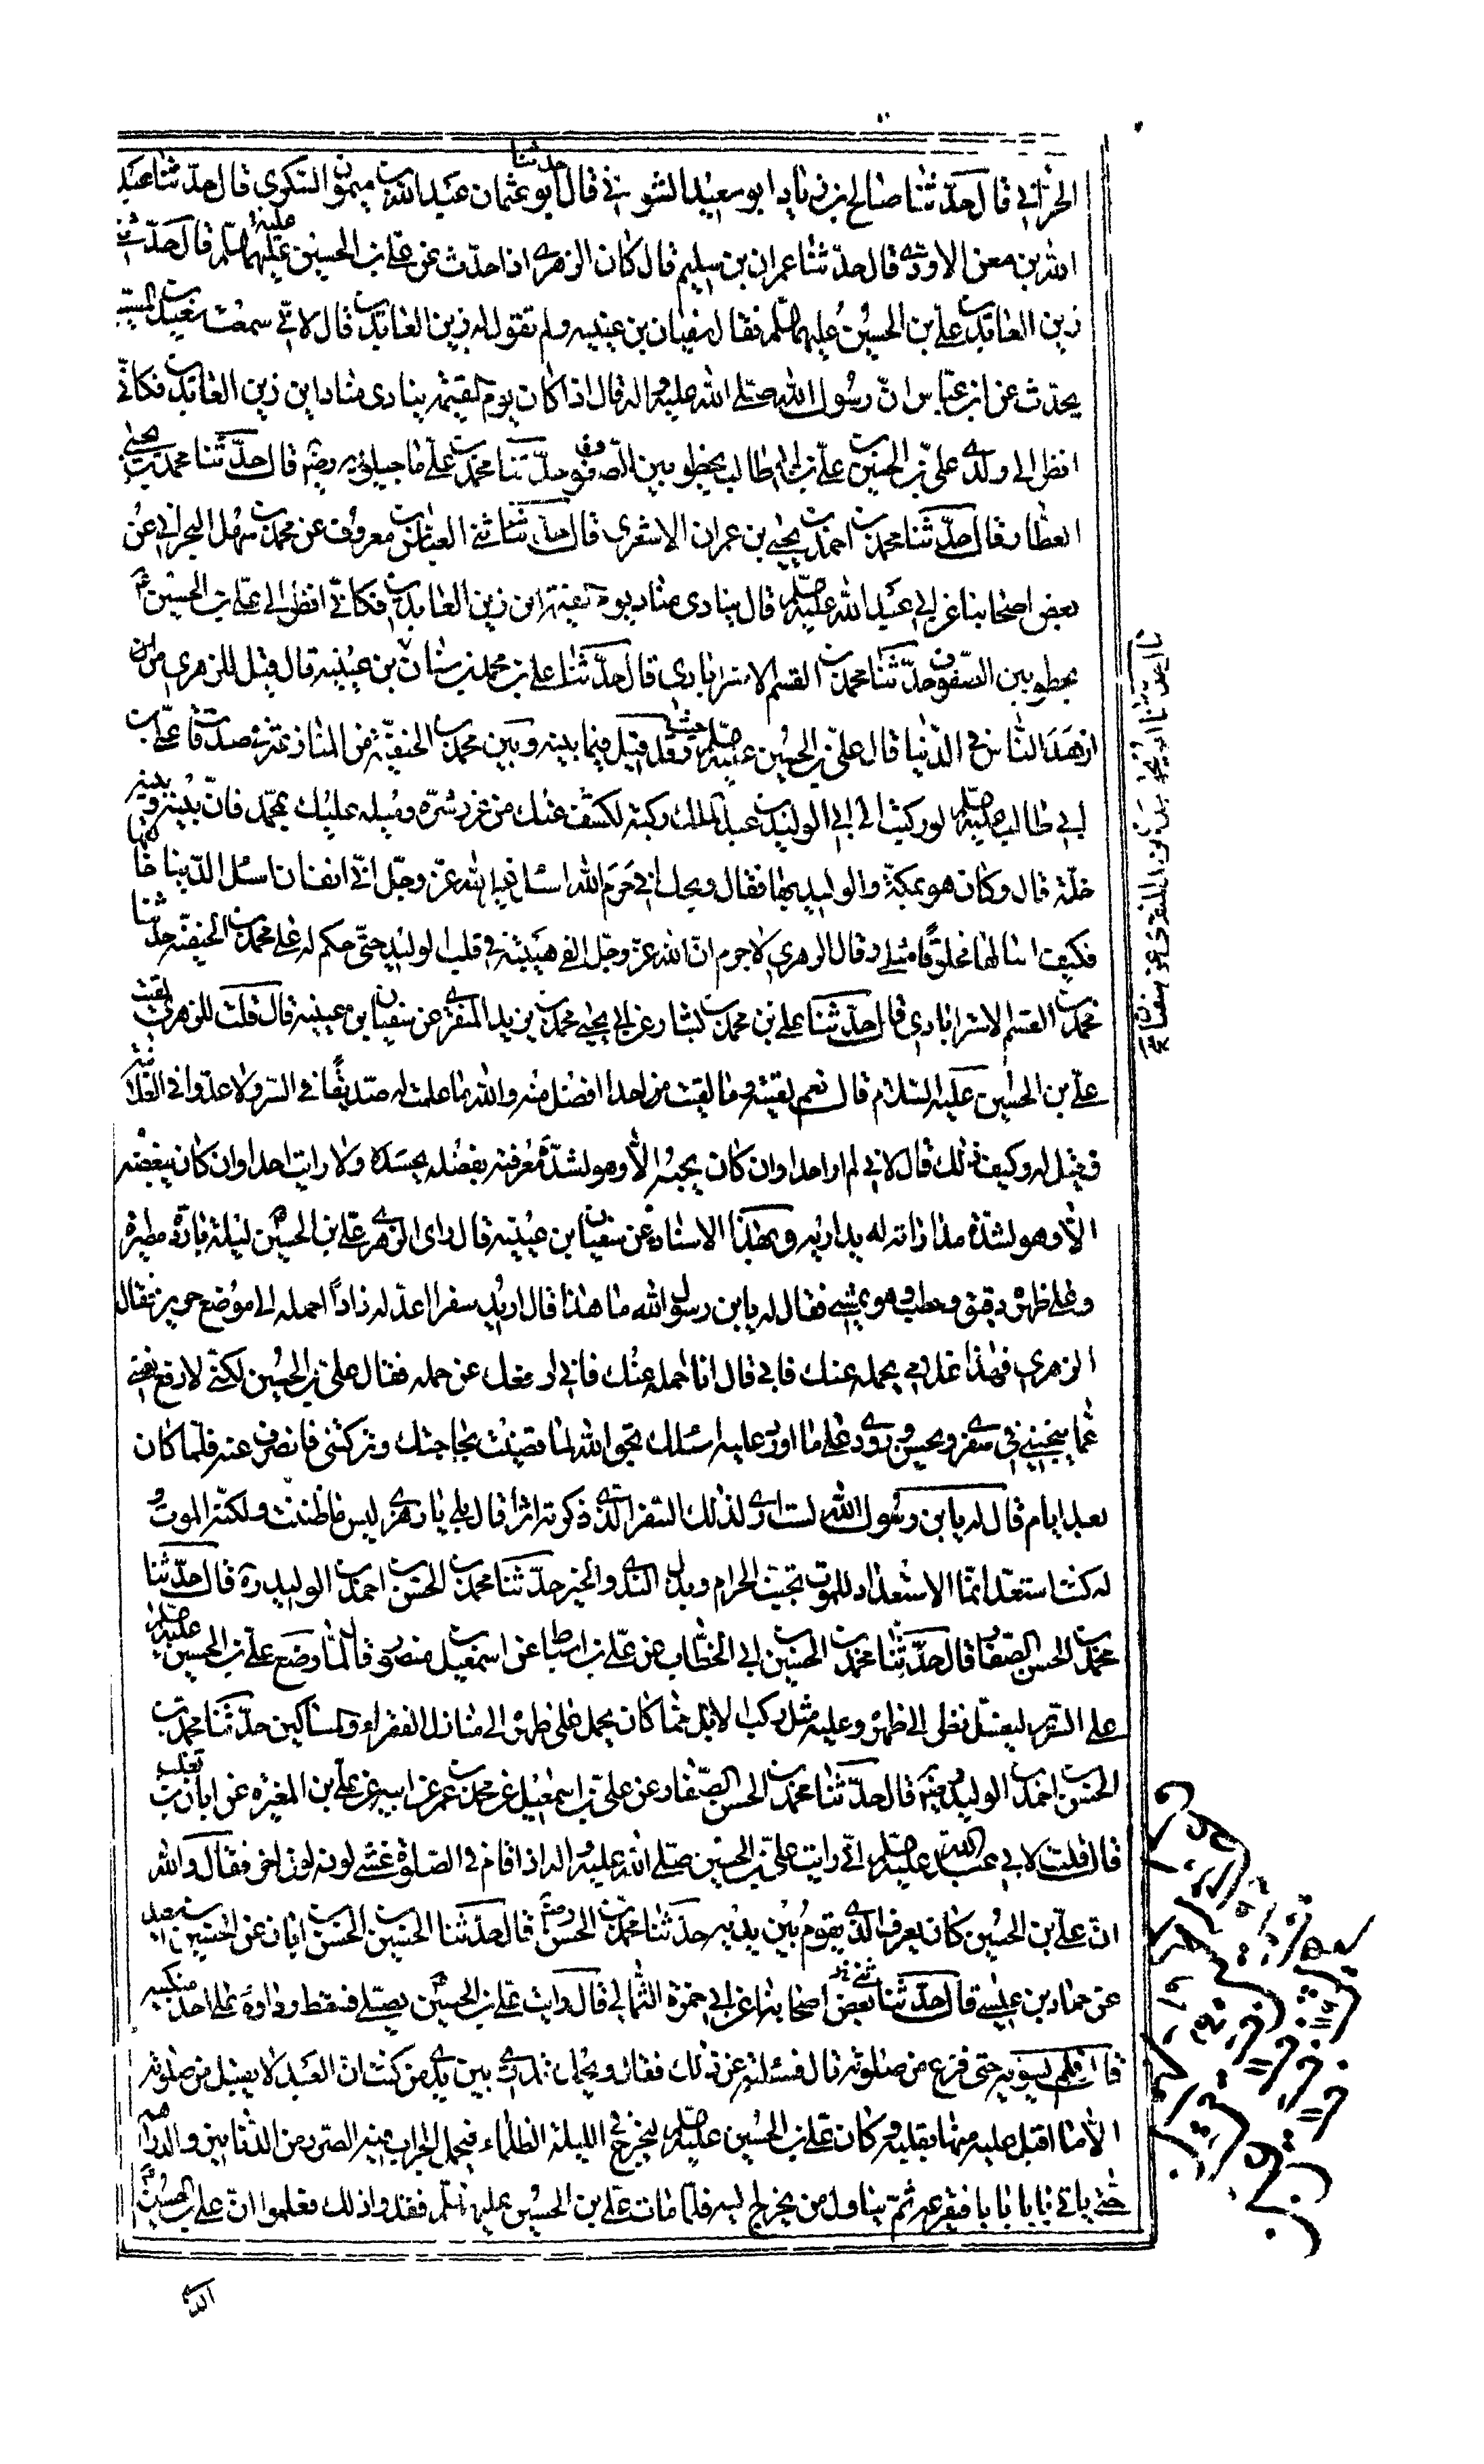 الحرّاني قال حدّثنا صالح بن زياد ابو سعيد الشوني قال حدثنا ابو عثمان عبد الله بن ميمون السكري قال حدّثنا عبد
الله بن معن الاودي قال حدّثنا عمران بن سليم قال كان الزهري اذا حدّث عن علي بن الحسين عليهما السلم قال حدّثني
زين العابدين علي بن الحسين عليهما السلم فقال له سفيان بن عيينه ولم تقول له زين العابدين قال لانّي سمعت سعيد بن المسيب
يحدّث عن ابن عبّاس انّ رسول الله صلّى الله عليه واله قال اذا كان يوم القيمة ينادي مناد اين زين العابدين فكانّي
انظر الى ولدي عليّ بن الحسين بن عليّ بن ابي طالب يخطو بين الصّفوف حدّثنا محمد بن علي ماجيلويه رضي قال حدّثنا محمد بن يحيى
العطّار قال حدّثنا محمد بن احمد بن يحيى بن عمران الاشعري قال حدّثنا العباس بن معروف عن محمد بن سهل البحراني عن
بعض اصحابنا عن ابي عبد الله عليه السلم قال ينادي مناد يوم القيمة اين زين العابدين فكانّي انظر الى علي بن الحسين ع
يخطو بين الصّفوف حدّثنا محمد بن القسم الاسترابادي قال حدّثنا علي بن محمد بن سنان بن عيينه قال قيل للزهري من
ازهد النّاس في الدّنيا قال عليّ بن الحسين عليه السلم حيث كان وقد قيل فيما بينه وبين محمد بن الحنفيّة من المنازعة في صدقات علي بن
ابي طالب عليه السلم لو ركبت الى الوليد بن عبد الملك ركبة لكشف عنك من غرر شرّه وميله عليك بمحمّد فانّ بينه وبينه
خلّة قال وكان هو بمكّة والوليد بها فقال ويحك افي حرم الله اسئل غير الله عزّ وجلّ انّي انف ان اسئل الدّنيا خالقها
فكيف اسالها مخلوقًا مثلي وقال الزهري لا جرم انّ الله عزّ وجلّ القى هيبته في قلب الوليد حتّى حكم له على محمد بن الحنفيّه حدثنا
محمد بن القسم الاسترابادي قال حدّثنا علي بن محمد بن بشار عن ابي يحيى محمد بن يزيد المنقري عن سفيان بن عيينه قال قلت للزهري لقيت
علي بن الحسين عليه السّلام قال نعم لقيته وما لقيت احدا افضل منه والله ما علمت له صديقًا في السّر ولا عدوا في العلانية
فقيل له وكيف ذلك قال لانّي لم ار احدا وان كان يحبّه الّا وهو لشدّة معرفته بفضله يحسده ولا رايت احدا وان كان يبغضه
الّا وهو لشدّة مداراته له يداريه وبهذا الاسناد عن سفيان بن عيينه قال راى الزهري علي بن الحسين ع ليلة باردة مطيرة
وعلى ظهره دقيق وحطب وهو يمشي فقال له يا بن رسول الله ما هذا قال اريد سفرا اعدّ له زادًا احمله الى موضع حريز فقال
الزهري فهذا غلامي يحمله عنك فابى قال انا احمله عنك فاني ارفعك عن حمله فقال علي بن الحسين لكنّي لا ارفع نفسي
عمّا ينجيني في سفري ويحسن ورودي على ما ارد عليه اسئلك بحق الله لمّا مضيت لحاجتك وتركتني فانصرف عنه فلمّا كان
بعد ايام قال له يا بن رسول الله لست ارى لذلك السّفر الّذي ذكرته اثرا قال بلى يا زهري ليس ما ظننت ولكنّه الموت و
له كنت استعدّ انّما الاستعداد للموت تجنّب الحرام وبذل النّدى والخير حدّثنا محمد بن الحسن بن احمد بن الوليد ره قال حدّثنا
محمد بن الحسن الصّفار قال حدّثنا محمد بن الحسين بن ابي الخطّاب عن عليّ بن اسباط عن اسمعيل بن منصور قال لمّا وضع علي بن الحسين عليه السلم
على السّرير ليغسل نظر الى ظهره وعليه مثل ركب الابل ممّا كان يحمل على ظهره الى منازل الفقراء والمساكين حدّثنا محمد بن
الحسن بن احمد بن الوليد رضي قال حدّثنا محمد بن الحسن الصّفار عن عليّ بن اسمعيل عن محمد بن عمر عن ابيه عن علي بن المغيره عن ابان بن تغلب
قال قلت لابي عبد الله عليه السلم انّي رايت عليّ بن الحسين صلّى الله عليه واله اذا قام في الصّلوة غشي لونه لون اخر فقال والله
انّ عليّ بن الحسين كان يعرف الّذي يقوم بين يديه حدّثنا محمد بن الحسن رضي قال حدّثنا الحسين بن الحسن بن ابان عن الحسين بن سعيد
عن حماد بن عيسى قال حدّثنا بعض اصحابنا عن ابي حمزة الثّمالي قال رايت علي بن الحسين ع يصلّي فسقط رداؤه على احد منكبيه
قال فلم يسوّيه حتى فرغ من صلوته قال فسئلته عن ذلك فقال ويحك اتدري بين يدي من كنت انّ العبد لا يقبل من صلوته
الّا ما اقبل عليه منها بقلبه وكان علي بن الحسين عليه السلم ليخرج في الليلة الظلماء فيحمل الجراب فيه الصّرر من الدنانير والدراهم
حتى ياتي بابا بابا فيقرعه ثمّ يناول من يخرج اليه فلمّا مات علي بن الحسين عليه السلم فقدوا ذلك فعلموا انّ علي بن الحسين ع